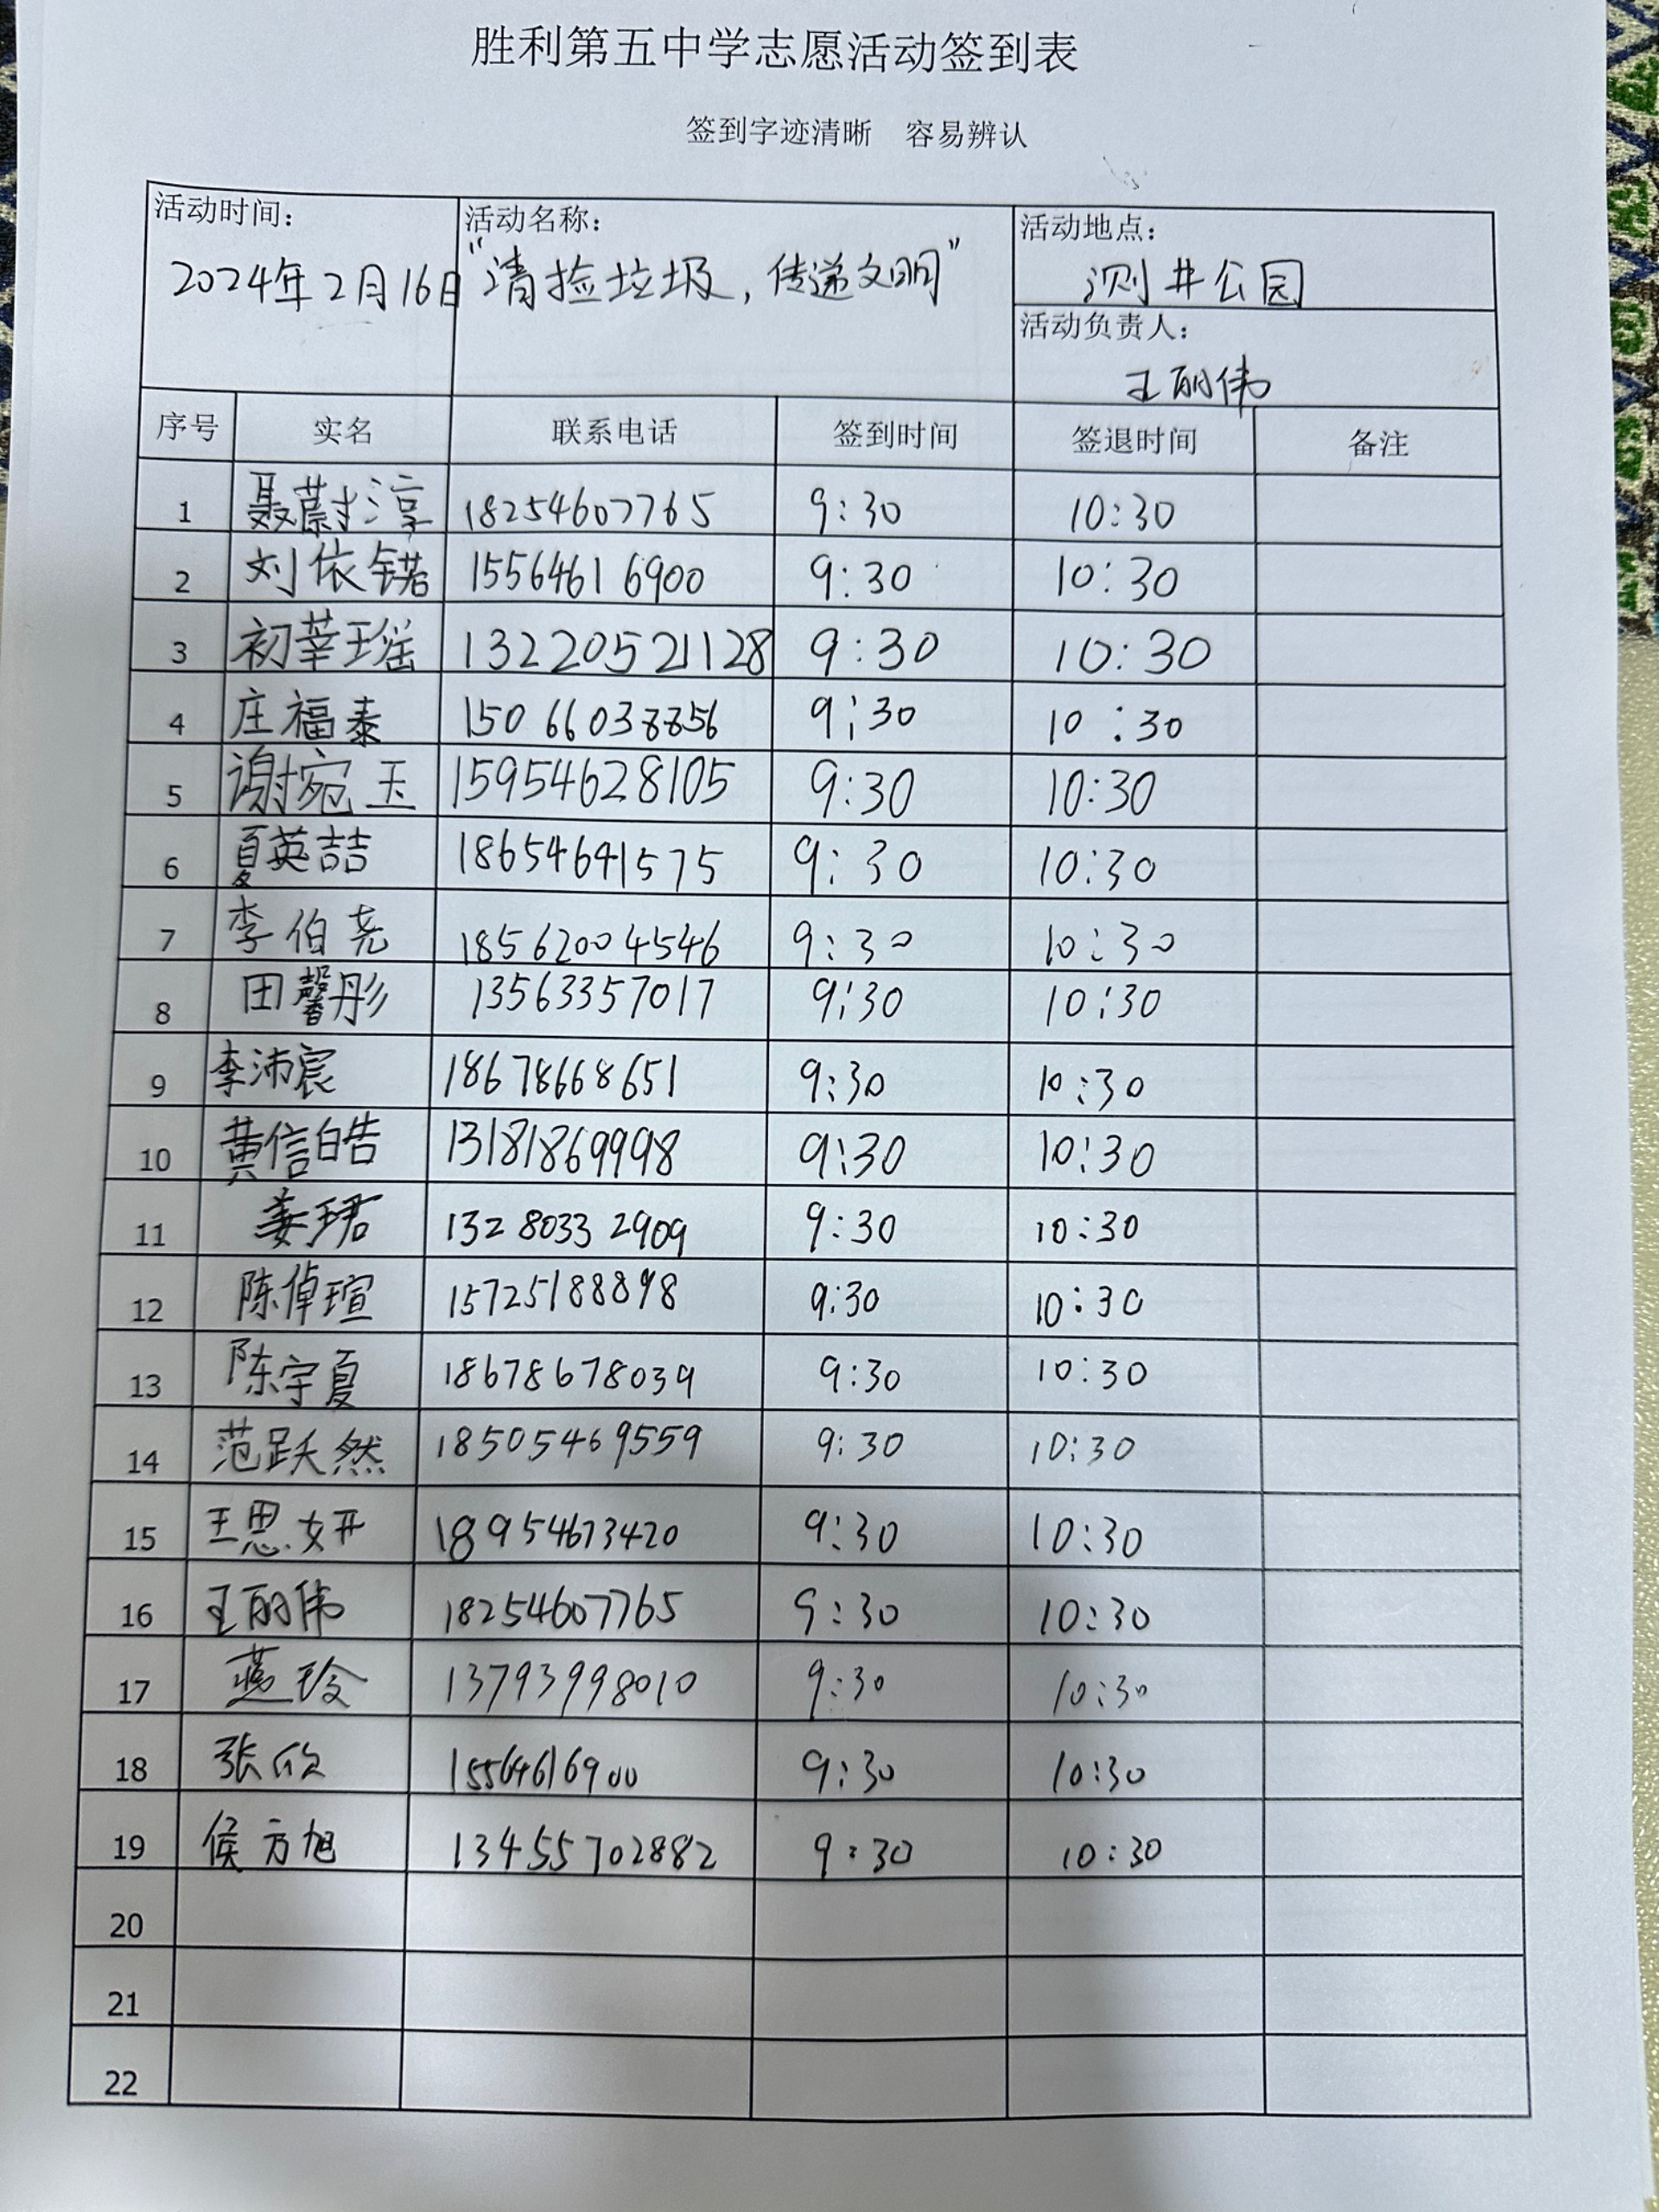 胜利第五中学志愿活动签到表
签到字迹清晰 容易辨认
活动时间： 活动名称： 活动地点：
2024年2月16日 “清捡垃圾，传递文明” 测井公园
活动负责人：
王丽伟
序号 实名 联系电话 签到时间 签退时间 备注
1 聂蔚淳 18254607765 9:30 10:30
2 刘依锘 15564616900 9:30 10:30
3 初莘瑶 13220521128 9:30 10:30
4 庄福泰 15066038856 9:30 10:30
5 谢宛玉 15954628105 9:30 10:30
6 夏英喆 18654641575 9:30 10:30
7 李伯尧 18562004546 9:30 10:30
8 田馨彤 13563357017 9:30 10:30
9 李沛宸 18678668651 9:30 10:30
10 黄信皓 13181869998 9:30 10:30
11 姜珺 13280332909 9:30 10:30
12 陈倬瑄 15725188898 9:30 10:30
13 陈宇夏 18678678039 9:30 10:30
14 范跃然 18505469559 9:30 10:30
15 王思妍 18954673420 9:30 10:30
16 王丽伟 18254607765 9:30 10:30
17 燕玲 13793998010 9:30 10:30
18 张欣 15564616900 9:30 10:30
19 侯方旭 13455702882 9:30 10:30
20
21
22